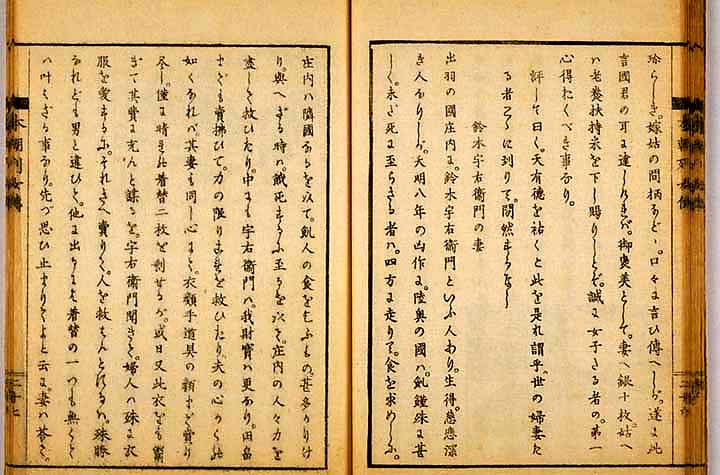 珍らしき。嫁姑の間柄なりと、口々に言ひ傳へしが。遂に此
言國君の耳に達しければ。御褒美として。妻へ銀十枚。姑へ
ハ老養扶持米を下し賜りしとぞ。誠に女子たる者の。第一
心得おくべき事なり。
評して曰く。天有德を祐くと此を是れ謂乎。世の婦妻た
る者こゝに到りて。間然するなし
鈴木宇右衛門の妻
出羽の國庄内に。鈴木宇右衛門といふ人あり。生得慈悲深
き人なりしが。天明八年の凶作に。陸奥の國ハ。飢饉殊に甚
しく。未だ死に至らざる者ハ。四方に走りて。食を求めしが。
庄内ハ隣國なるを以て。飢人の食を乞ふもの。甚多かりけ
り。與へざる時ハ。餓死するに至るを以て。庄内の人々力を
盡して救ひたり。中にも宇右衛門ハ。我財寶ハ更なり。田畠
までも賣拂ひて。力の限りを救ひたり。夫の心かく此
如くなれバ。其妻も同し心にて。衣類手道具の類まで賣り
尽し。僅に晴着と着替二枚を剰せるが。或日又此衣をも鬻
ぎて其費に充んと謀るを。宇右衛門聞きて。婦人ハ殊に衣
服を愛するに。それさへ賣りて。人を救もんとするハ。殊勝
なれども男と違ひて。他に出るにも着替の一つも無くて
ハ叶はざる事なり。先づ思ひ止まりてよと云に。妻ハ答て。
本朝列女傳
二十七